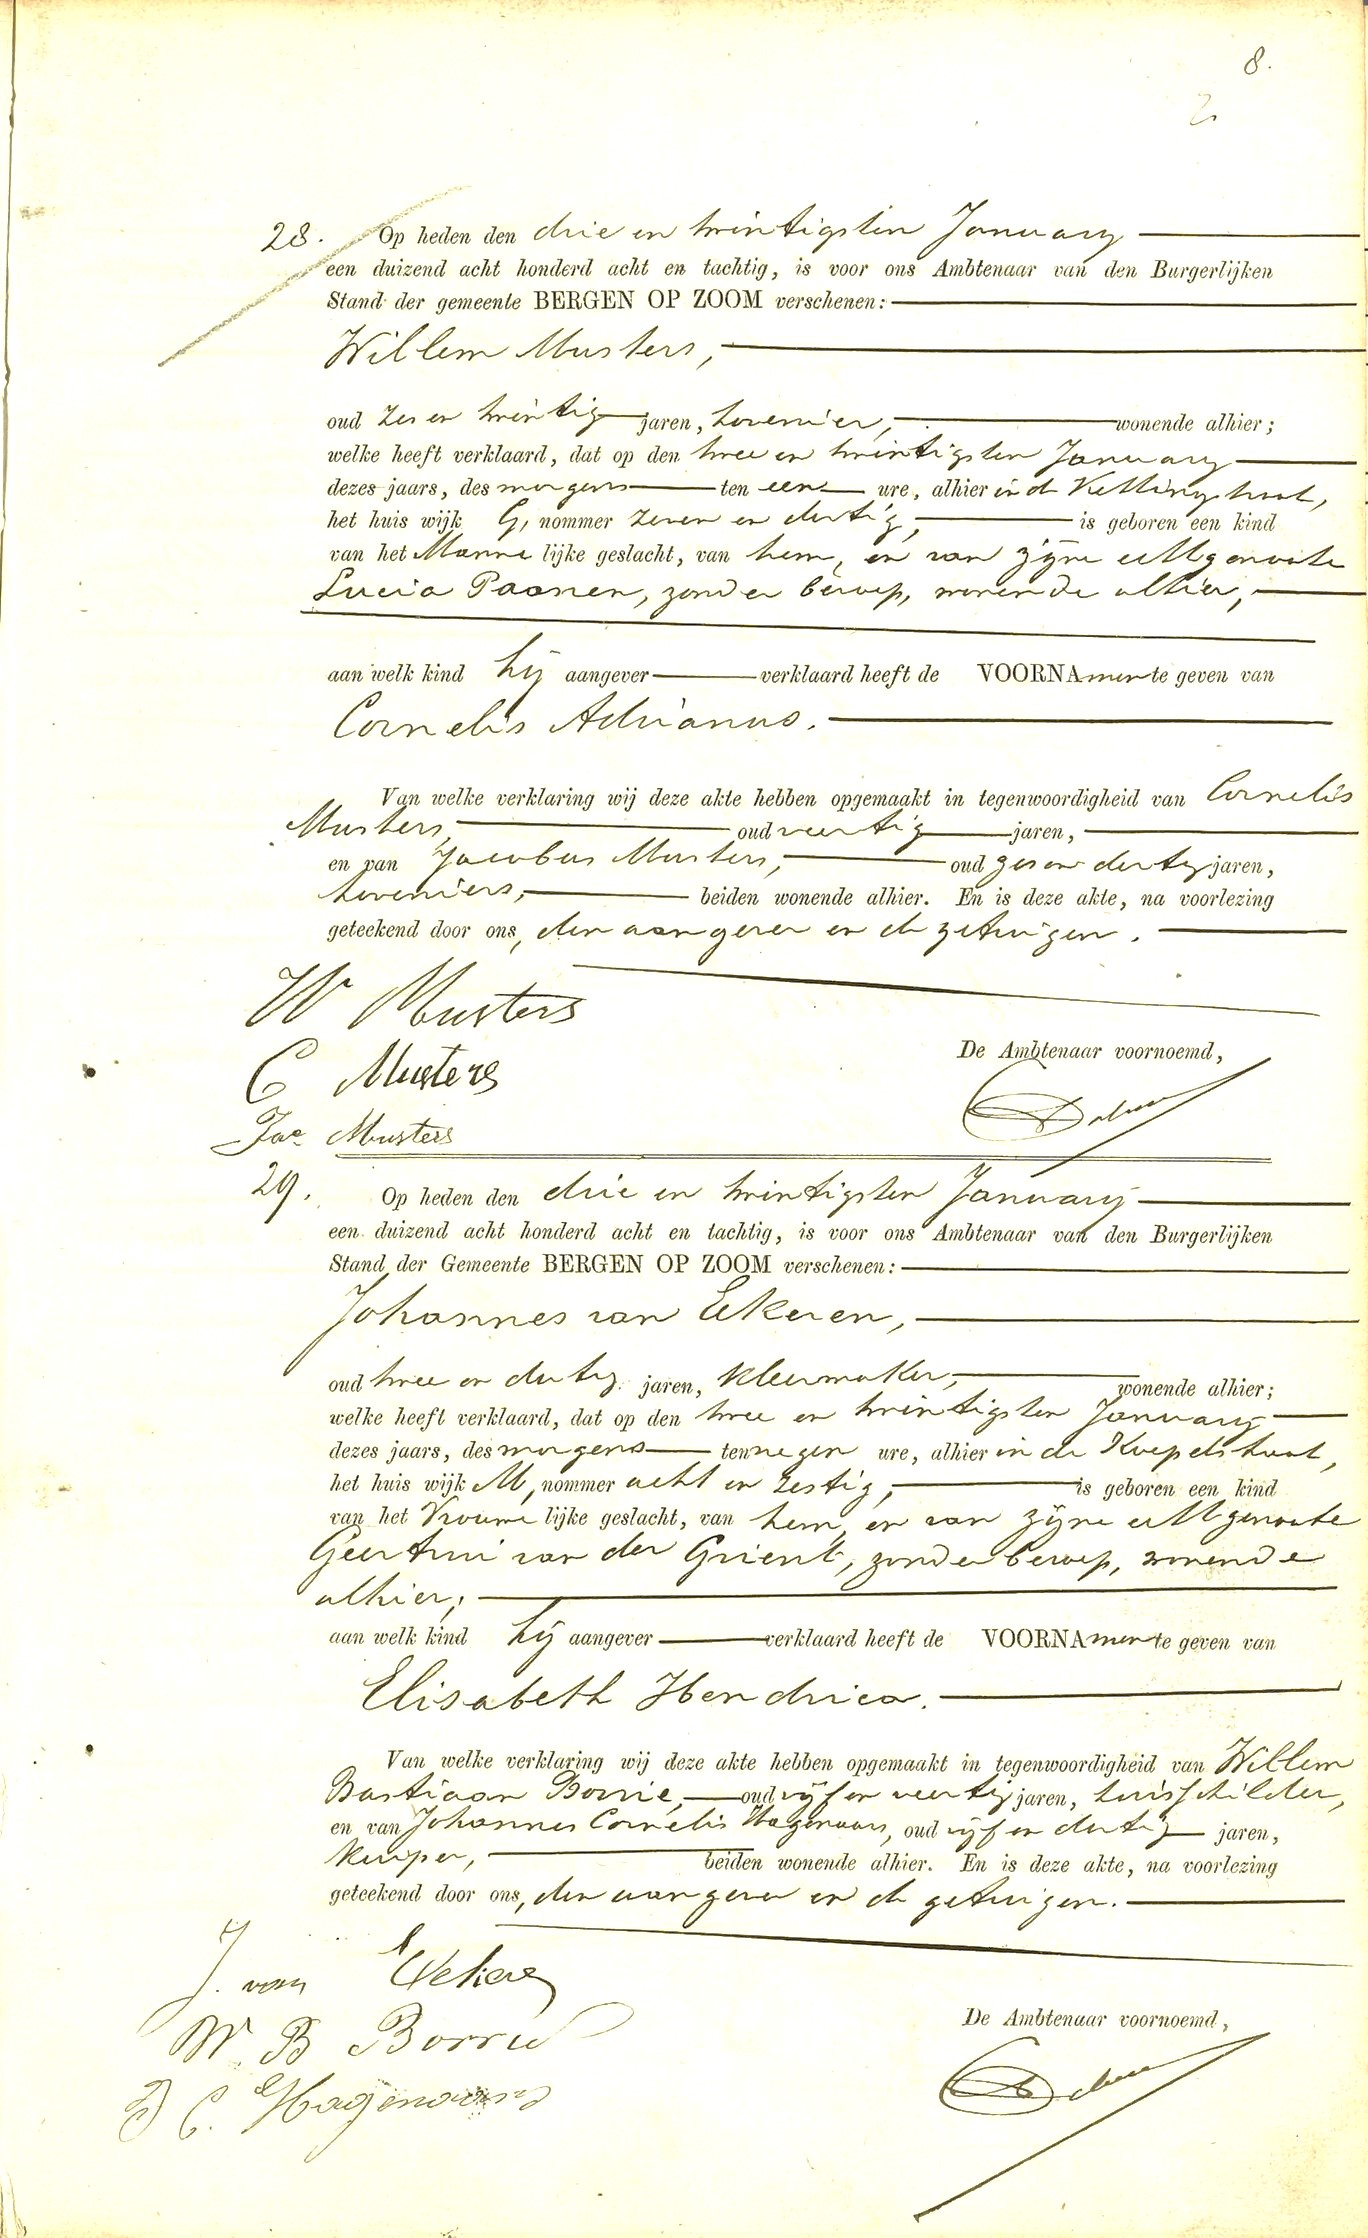 8.
2
28. Op heden den drie en twintigsten January
een duizend acht honderd acht en tachtig, is voor ons Ambtenaar van den Burgerlijken
Stand der gemeente BERGEN OP ZOOM verschenen:
Willem Musters,
oud zes en twintig jaren, hovenier, wonende alhier;
welke heeft verklaard, dat op den twee en twintigsten January
dezes jaars, des morgens ten een ure, alhier in de Kettingstraat,
het huis wijk G, nommer zeven en dertig, is geboren een kind
van het Manne lijke geslacht, van hem, en van zijne echtgenoote
Lucia Paanen, zonder beroep, wonende alhier,
aan welk kind hij aangever verklaard heeft de VOORNAmen te geven van
Cornelis Adrianus.
Van welke verklaring wij deze akte hebben opgemaakt in tegenwoordigheid van Cornelis
Musters, oud veertig jaren,
en van Jacobus Musters, oud zes en dertig jaren,
hoveniers, beiden wonende alhier. En is deze akte, na voorlezing
geteekend door ons, den aangever en de getuigen.
W Musters
C Musters
De Ambtenaar voornoemd,
Jac Musters
29. Op heden den drie en twintigsten January
een duizend acht honderd acht en tachtig, is voor ons Ambtenaar van den Burgerlijken
Stand der Gemeente BERGEN OP ZOOM verschenen:
Johannes van Eekeren,
oud twee en dertig jaren, kleermaker, wonende alhier;
welke heeft verklaard, dat op den twee en twintigsten January
dezes jaars, des morgens ten negen ure, alhier in de Koepelstraat,
het huis wijk M, nommer acht en zestig, is geboren een kind
van het Vrouwe lijke geslacht, van hem, en van zijne echtgenoote
Geertrui van der Grient, zonder beroep, wonende
alhier;
aan welk kind hij aangever verklaard heeft de VOORNAmen te geven van
Elisabeth Hendrica.
Van welke verklaring wij deze akte hebben opgemaakt in tegenwoordigheid van Willem
Bastiaan Borrie, oud vijf en veertig jaren, huisschilder,
en van Johannes Cornelis Hagenaars, oud vijf en dertig jaren,
kuiper, beiden wonende alhier. En is deze akte, na voorlezing
geteekend door ons, den aangever en de getuigen.
J. van Eekere
W. B Borrie
De Ambtenaar voornoemd,
J C. Hagenaars